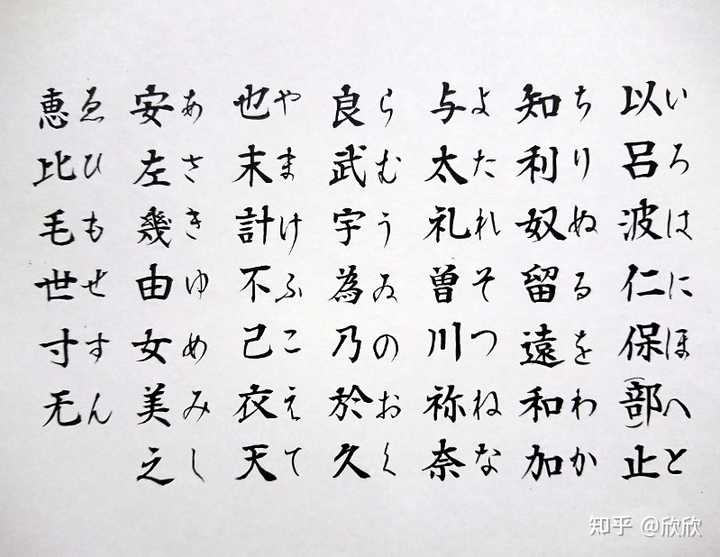 以い 呂ろ 波は 仁に 保ほ (部)へ 止と
知ち 利り 奴ぬ 留る 遠を 和わ 加か
与よ 太た 礼れ 曽そ 川つ 祢ね 奈な
良ら 武む 宇う 為ゐ 乃の 於お 久く
也や 末ま 計け 不ふ 己こ 衣え 天て
安あ 左さ 幾き 由ゆ 女め 美み 之し
恵ゑ 比ひ 毛も 世せ 寸す 无ん
知乎 @欣欣